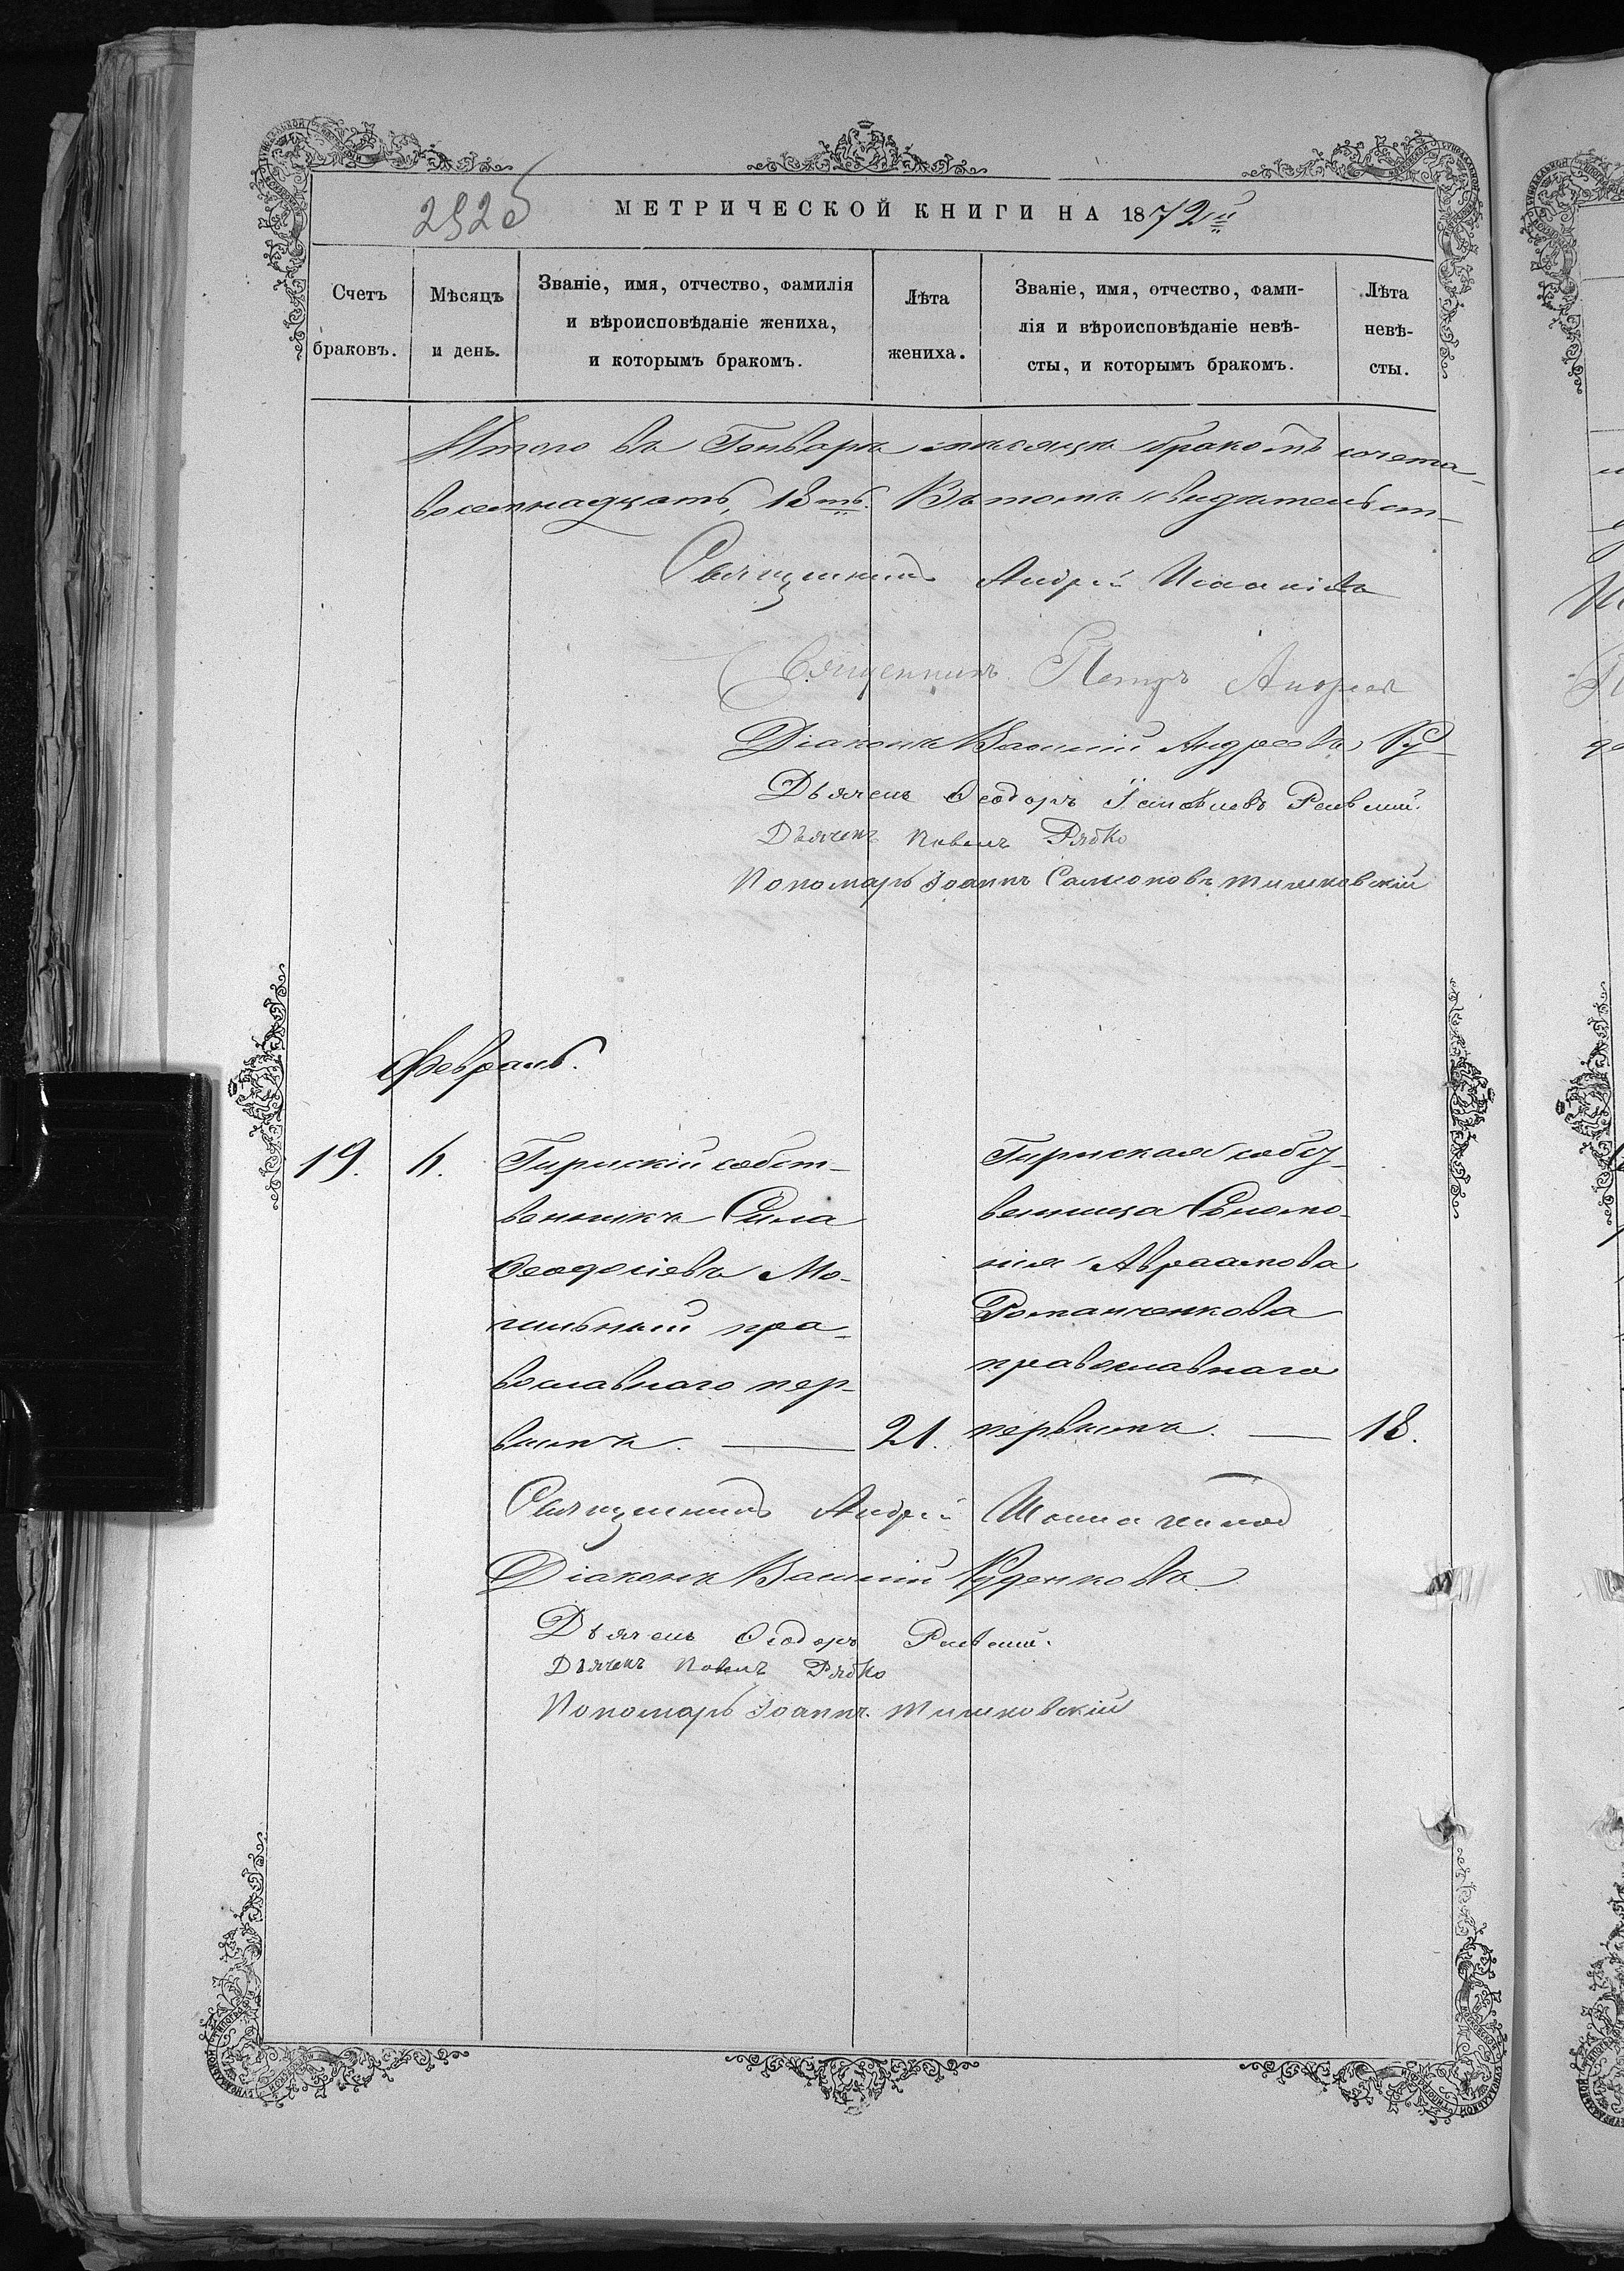 МЕТРИЧЕСКОЙ КНИГИ НА 1872й
Счетъ браковъ.
Мѣсяцъ и день.
Званіе, имя, отчество, фамилія
и вѣроисповѣданіе жениха,
и которымъ бракомъ.
Лѣта жениха.
Званіе, имя, отчество, фами-
лія и вѣроисповѣданіе невѣ-
сты, и которымъ бракомъ.
Лѣта невѣ-
сты.
Итого въ Генварѣ мѣсяцѣ бракомъ сочета-
восемнадцать, 18ть. Въ томъ свидѣтельст-
Священникъ Андрей
Священникъ Петръ Андреев
Діаконъ Василій Андреевъ Ру-
Дьячекъ Ѳеодоръ
Дьячекъ Павелъ Рябко
Пономарь Іоаннъ Самсоновъ Тишковскій
Февраль.
19.
4.
Гирискій собст-
венникъ Сила
Ѳеодосіевъ Мо-
гильный пра-
вославнаго пер-
вымъ.
21.
Гириская собст-
венница Соломо-
нія Авраамова
Романченкова
православнаго
первымъ.
18.
Священникъ Андрей
Діаконъ Василій Руденковъ.
Дьячекъ Ѳеодоръ
Дьячекъ Павелъ Рябко
Пономарь Іоаннъ Тишковскій